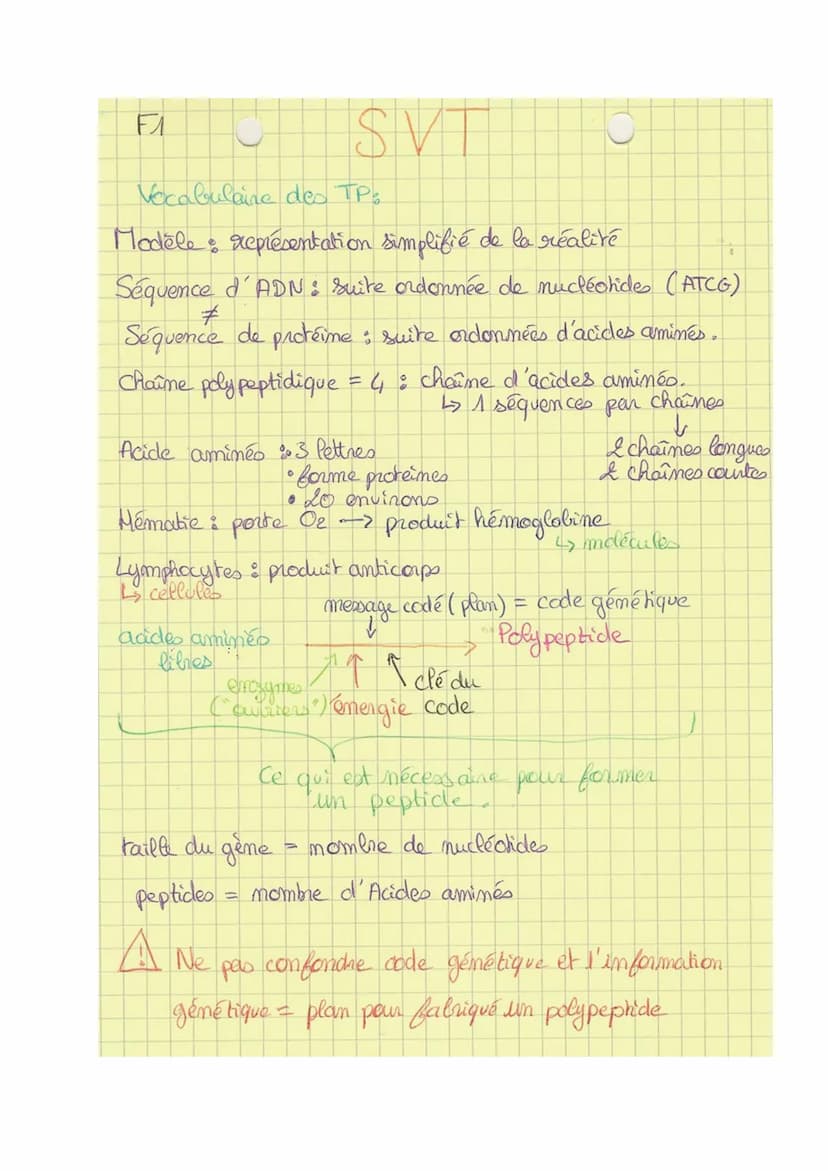 F1
SVT
Vocabulaire des TP :
Modèle : représentation simplifié de la réalité
Séquence d'ADN : suite ordonnée de nucléotides (ATCG)
≠
Séquence de protéine : suite ordonnées d'acides aminés.
Chaîne polypeptidique = 4 : chaîne d'acides aminés.
↳ 1 séquences par chaînes
↓
Acide aminés : • 3 lettres
2 chaînes longues
• forme protéines
2 chaînes courtes
• 20 environs
Hématie : porte O2 → produit hémoglobine
↳ molécules
Lymphocytes : produit anticorps
↳ cellules
message codé (plan) = code génétique
acides aminés
Polypeptide
libres
enzymes
clé du
("ouvriers")
énergie
code
Ce qui est nécessaire pour former
un peptide.
taille du gène = nombre de nucléotides
peptides = nombre d'Acides aminés
⚠ Ne pas confondre code génétique et l'information
génétique = plan pour fabriqué un polypeptide